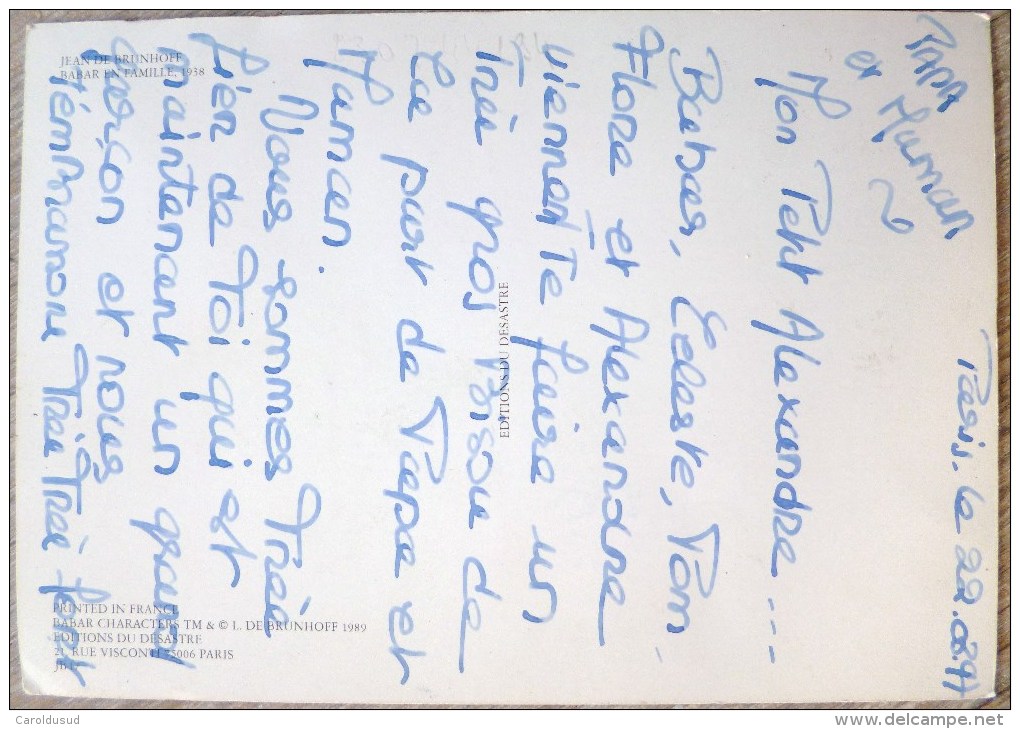 Paris, le 22.08.97
Mon Petit Alexandre ....
Babar, Celeste, Pom
Flore et Alexandre
viennent Te faire un
Très gros bisou de
La part de Papa et
Maman.
Nous sommes Très
fier de Toi qui est
maintenant un grand
garçon et nous
t'embrassons Très Très fort
PAPA
et Maman
JEAN DE BRUNHOFF
BABAR EN FAMILLE, 1938
EDITIONS DU DESASTRE
PRINTED IN FRANCE
BABAR CHARACTERS TM & © L. DE BRUNHOFF 1989
EDITIONS DU DESASTRE
21, RUE VISCONTI 75006 PARIS
Caroldusud
www.delcampe.net